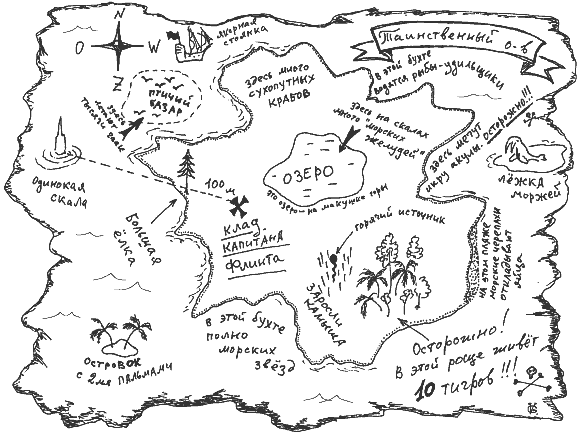 N
O
W
Z
якорная
стоянка
Таинственный о-в
в этой бухте
водятся рыбы-удильщики
здесь много
сухопутных
крабов
птичий
базар
здесь на скалах
много морских
"желудей"
здесь мечут
икру акулы. Осторожно!!!
Одинокая
скала
100м
ОЗЕРО
это озеро - на макушке горы
лёжка
моржей
Большая
ёлка
клад
капитана
Флинта
горячий источник
заросли
камыша
на этом пляже
морские черепахи
откладывают
яйца
Островок
с 2мя пальмами
в этой бухте
полно
морских
звёзд
Осторожно!
В этой роще живёт
10 тигров!!!